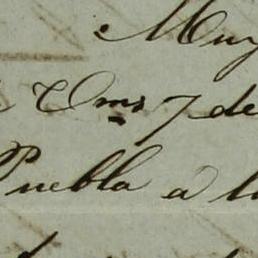 Muy
Oms 7 de
Puebla a l